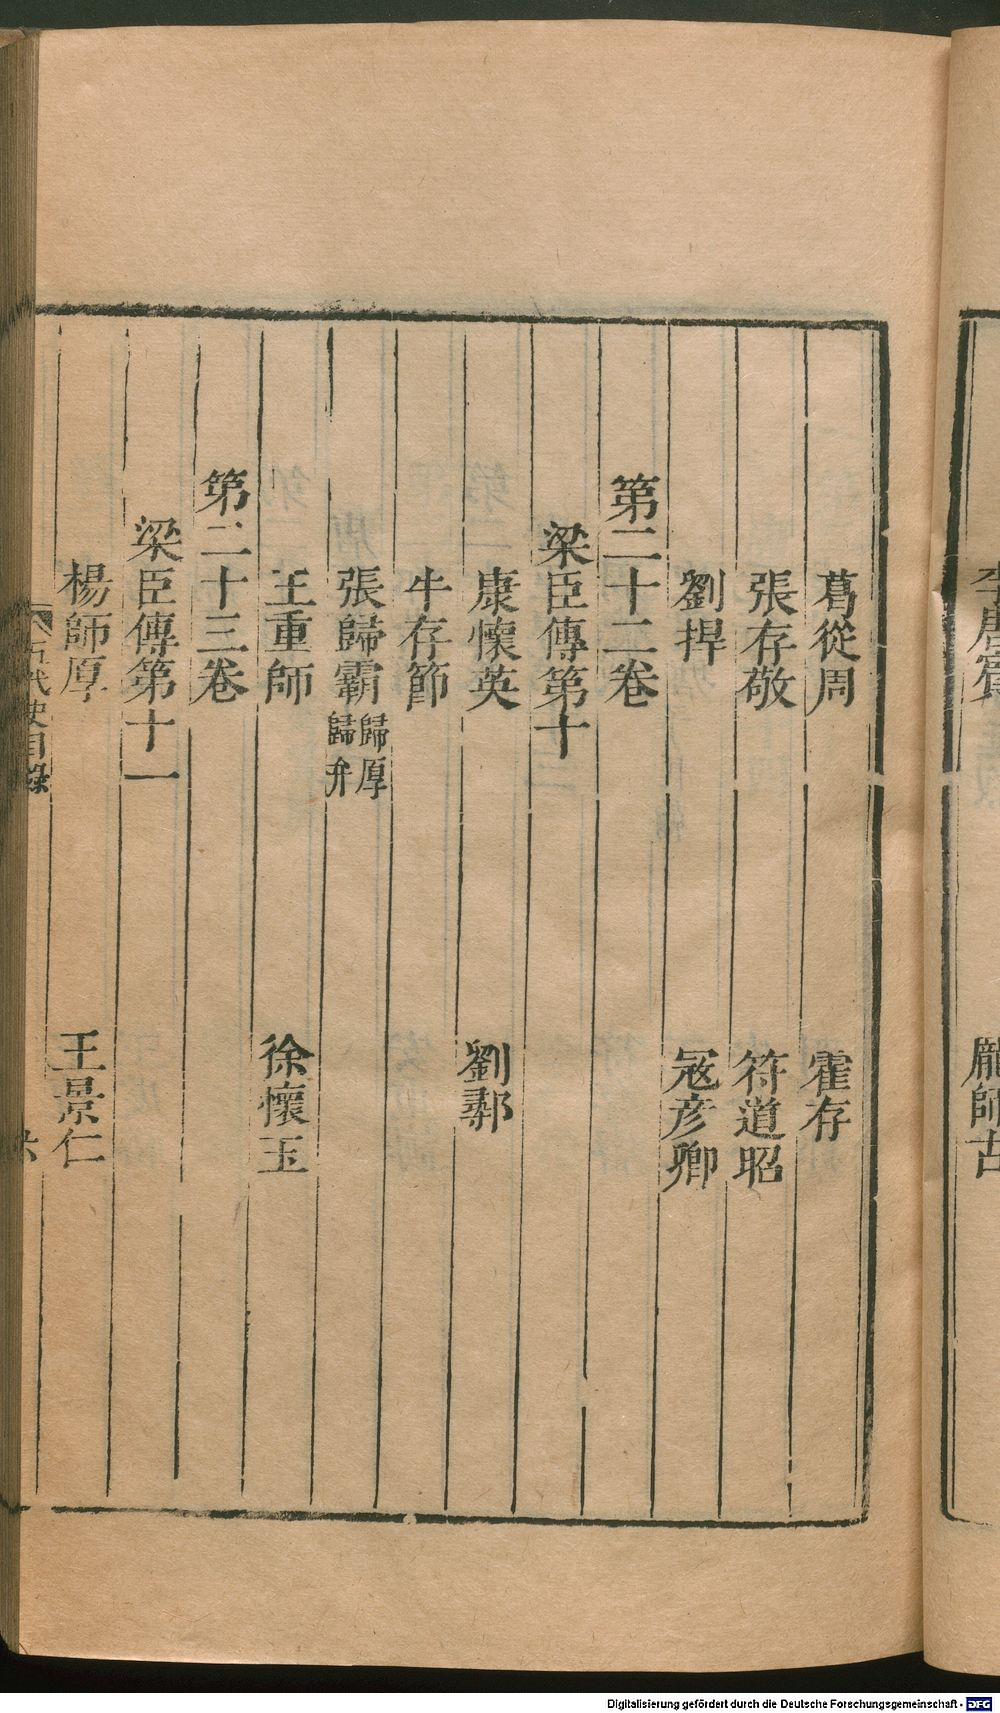 葛從周 霍存
張存敬 符道昭
劉捍 冦彥卿
第二十二卷
梁臣傳第十
康懷英 劉鄩
牛存節
張歸霸 歸厚 歸弁
王重師 徐懷玉
第二十三卷
梁臣傳第十一
楊師厚 王景仁
五代史目錄 六
李唐賓 龐師古
Digitalisierung gefördert durch die Deutsche Forschungsgemeinschaft - DFG